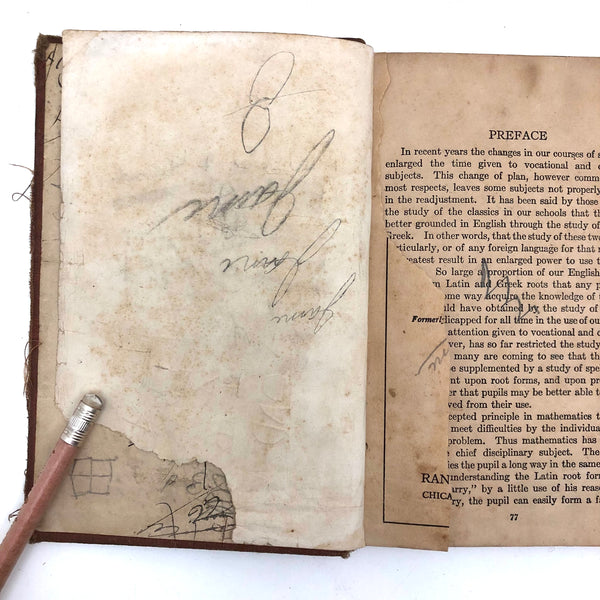 PREFACE
In recent years the changes in our courses of s
enlarged the time given to vocational and
subjects. This change of plan, however comm
most respects, leaves some subjects not properly
in the readjustment. It has been said by those
the study of the classics in our schools that th
better grounded in English through the study of
Greek. In other words, that the study of these two
rticularly, or of any foreign language for that
eatest result in an enlarged power to use t
So large a proportion of our English
m Latin and Greek roots that any p
ome way acquire the knowledge of
uld have obtained in the study of
Formerl
dicapped for all time in the use of ou
attention given to vocational and c
ver, has so far restricted the study
many are coming to see that th
e supplemented by a study of spe
nt upon root forms, and upon pr
er that pupils may be better able to
ved from their use.
cepted principle in mathematics t
meet difficulties by the individua
problem. Thus mathematics has
chief disciplinary subject. The
ies the pupil a long way in the same
RAN
understanding the Latin root for
CHICA
arry," by a little use of his reaso
ry, the pupil can easily form a f
77
Jame
Jame
Jame